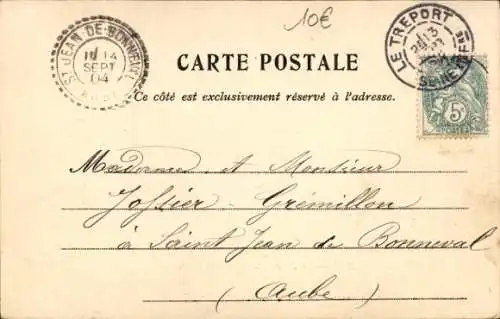 10€
ST JEAN-DE-BONNEVAL
14
SEPT
04
AUBE
LE TRÉPORT
13
SEINE INFRE
CARTE POSTALE
Ce côté est exclusivement réservé à l'adresse.
5
POSTES
Mesdames et Monsieur
Jossier-Grémillon
à Saint Jean de Bonneval
(Aube)